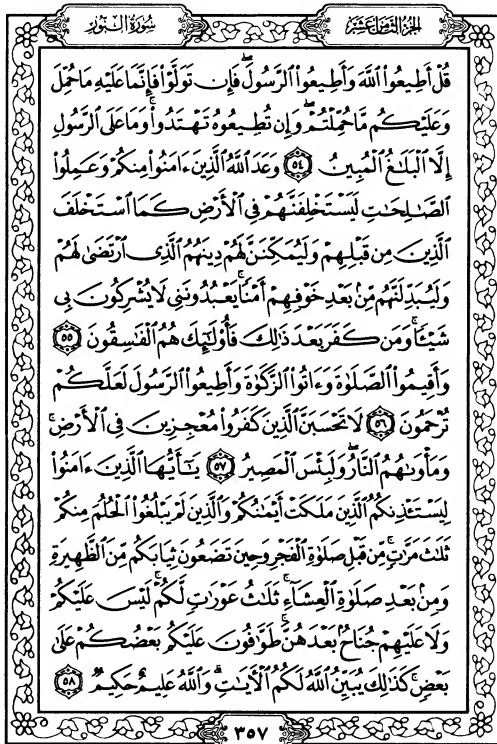 سُورَةُ النُّورِ
الجُزْءُ الثَّامِنَ عَشَرَ
قُلْ أَطِيعُوا۟ ٱللَّهَ وَأَطِيعُوا۟ ٱلرَّسُولَ ۖ فَإِن تَوَلَّوْا۟ فَإِنَّمَا عَلَيْهِ مَا حُمِّلَ
وَعَلَيْكُم مَّا حُمِّلْتُمْ ۖ وَإِن تُطِيعُوهُ تَهْتَدُوا۟ ۚ وَمَا عَلَى ٱلرَّسُولِ
إِلَّا ٱلْبَلَٰغُ ٱلْمُبِينُ ٥٤ وَعَدَ ٱللَّهُ ٱلَّذِينَ ءَامَنُوا۟ مِنكُمْ وَعَمِلُوا۟
ٱلصَّٰلِحَٰتِ لَيَسْتَخْلِفَنَّهُمْ فِى ٱلْأَرْضِ كَمَا ٱسْتَخْلَفَ
ٱلَّذِينَ مِن قَبْلِهِمْ وَلَيُمَكِّنَنَّ لَهُمْ دِينَهُمُ ٱلَّذِى ٱرْتَضَىٰ لَهُمْ
وَلَيُبَدِّلَنَّهُم مِّنۢ بَعْدِ خَوْفِهِمْ أَمْنًا ۚ يَعْبُدُونَنِى لَا يُشْرِكُونَ بِى
شَيْـًٔا ۚ وَمَن كَفَرَ بَعْدَ ذَٰلِكَ فَأُو۟لَٰٓئِكَ هُمُ ٱلْفَٰسِقُونَ ٥٥
وَأَقِيمُوا۟ ٱلصَّلَوٰةَ وَءَاتُوا۟ ٱلزَّكَوٰةَ وَأَطِيعُوا۟ ٱلرَّسُولَ لَعَلَّكُمْ
تُرْحَمُونَ ٥٦ لَا تَحْسَبَنَّ ٱلَّذِينَ كَفَرُوا۟ مُعْجِزِينَ فِى ٱلْأَرْضِ ۚ
وَمَأْوَىٰهُمُ ٱلنَّارُ ۖ وَلَبِئْسَ ٱلْمَصِيرُ ٥٧ يَٰٓأَيُّهَا ٱلَّذِينَ ءَامَنُوا۟
لِيَسْتَـْٔذِنكُمُ ٱلَّذِينَ مَلَكَتْ أَيْمَٰنُكُمْ وَٱلَّذِينَ لَمْ يَبْلُغُوا۟ ٱلْحُلُمَ مِنكُمْ
ثَلَٰثَ مَرَّٰتٍ ۚ مِّن قَبْلِ صَلَوٰةِ ٱلْفَجْرِ وَحِينَ تَضَعُونَ ثِيَابَكُم مِّنَ ٱلظَّهِيرَةِ
وَمِنۢ بَعْدِ صَلَوٰةِ ٱلْعِشَآءِ ۚ ثَلَٰثُ عَوْرَٰتٍ لَّكُمْ ۚ لَيْسَ عَلَيْكُمْ
وَلَا عَلَيْهِمْ جُنَاحٌۢ بَعْدَهُنَّ ۚ طَوَّٰفُونَ عَلَيْكُم بَعْضُكُمْ عَلَىٰ
بَعْضٍ ۚ كَذَٰلِكَ يُبَيِّنُ ٱللَّهُ لَكُمُ ٱلْءَايَٰتِ ۗ وَٱللَّهُ عَلِيمٌ حَكِيمٌ ٥٨
٣٥٧